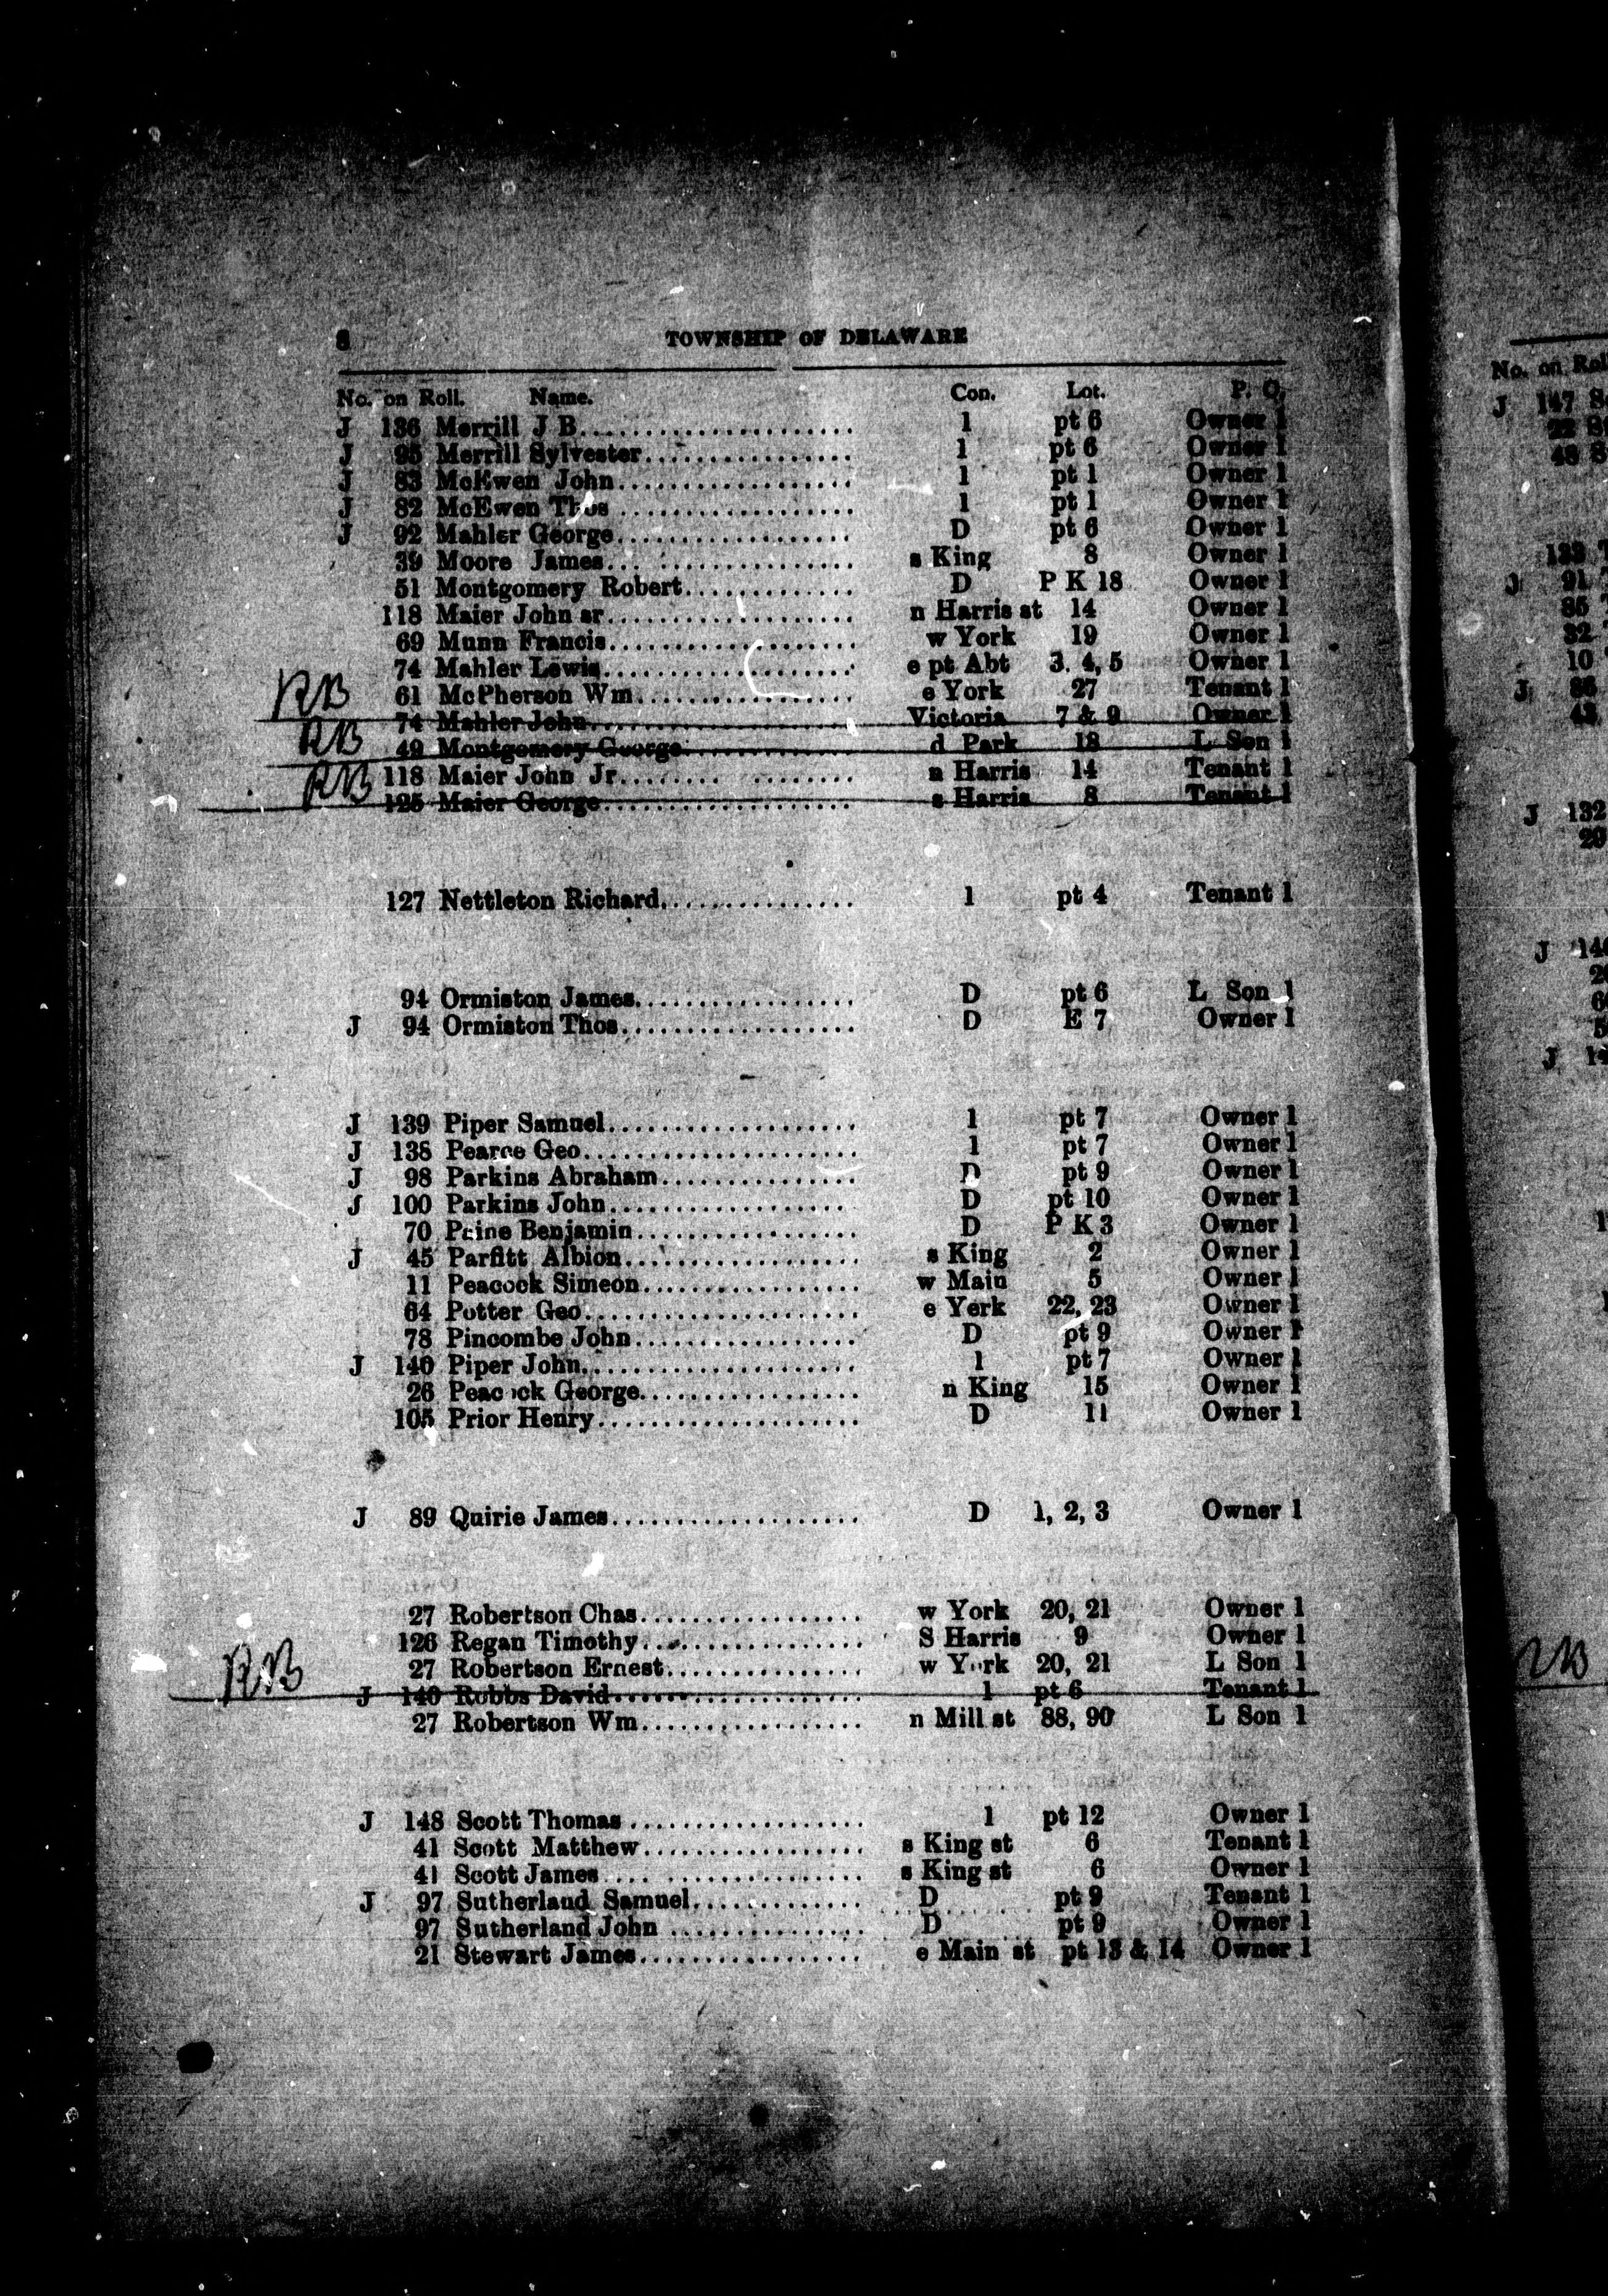 8 TOWNSHIP OF DELAWARE
No. on Roll. Name. Con. Lot. P. O.
J 136 Merrill J B...................... 1 pt 6 Owner 1
J 95 Merrill Sylvester................ 1 pt 6 Owner 1
J 83 McEwen John.................. 1 pt 1 Owner 1
J 82 McEwen Thos .................. 1 pt 1 Owner 1
J 92 Mahler George.................. D pt 6 Owner 1
39 Moore James................... s King 8 Owner 1
51 Montgomery Robert............. D P K 18 Owner 1
118 Maier John sr................... n Harris st 14 Owner 1
69 Munn Francis................... w York 19 Owner 1
74 Mahler Lewis................... e pt Abt 3, 4, 5 Owner 1
RB 61 McPherson Wm................. e York 27 Tenant 1
74 Mahler John.................... Victoria 7 & 9 Owner 1
RB 49 Montgomery George............. d Park 18 L Son 1
RB 118 Maier John Jr.................. n Harris 14 Tenant 1
125 Maier George................... s Harris 8 Tenant 1
127 Nettleton Richard............... 1 pt 4 Tenant 1
94 Ormiston James................. D pt 6 L Son 1
J 94 Ormiston Thos.................. D E 7 Owner 1
J 139 Piper Samuel................... 1 pt 7 Owner 1
J 138 Pearce Geo..................... 1 pt 7 Owner 1
J 98 Parkins Abraham............... D pt 9 Owner 1
J 100 Parkins John.................. D pt 10 Owner 1
70 Paine Benjamin................. D P K 3 Owner 1
J 45 Parfitt Albion.................. s King 2 Owner 1
11 Peacock Simeon................. w Main 5 Owner 1
64 Potter Geo..................... e Yerk 22, 23 Owner 1
78 Pincombe John................. D pt 9 Owner 1
J 140 Piper John..................... 1 pt 7 Owner 1
26 Peacock George................. n King 15 Owner 1
105 Prior Henry.................... D 11 Owner 1
J 89 Quirie James................... D 1, 2, 3 Owner 1
27 Robertson Chas................. w York 20, 21 Owner 1
126 Regan Timothy................. S Harris 9 Owner 1
RB 27 Robertson Ernest............... w York 20, 21 L Son 1
J 140 Robbs David................... 1 pt 6 Tenant 1
27 Robertson Wm................. n Mill st 88, 90 L Son 1
J 148 Scott Thomas.................. 1 pt 12 Owner 1
41 Scott Matthew................. s King st 6 Tenant 1
41 Scott James................... s King st 6 Owner 1
J 97 Sutherland Samuel............. D pt 9 Tenant 1
97 Sutherland John ............... D pt 9 Owner 1
21 Stewart James................. e Main st pt 13 & 14 Owner 1
No. on Roll
J 147
22
48
J 91
85
32
10
J 86
43
J 132
29
J
J
RB